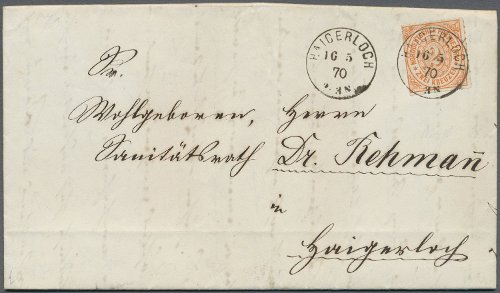 HAIGERLOCH
16 5
70
HAIGERLOCH
16 5
70
Sr.
Wohlgeboren, Herrn
Sanitätsrath Dr. Rehman̄
in
Haigerloch